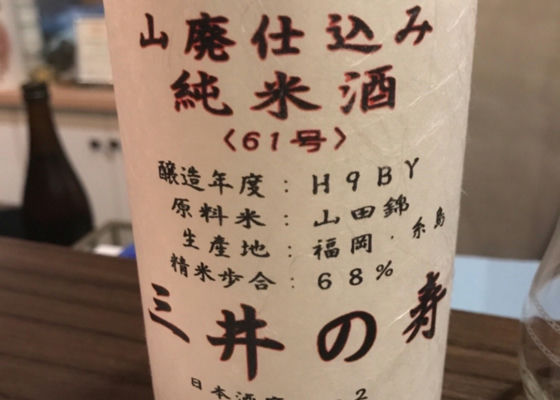 山廃仕込み
純米酒
〈61号〉
醸造年度：H9BY
原料米：山田錦
生産地：福岡・糸島
精米歩合：68%
三井の寿
日本酒度